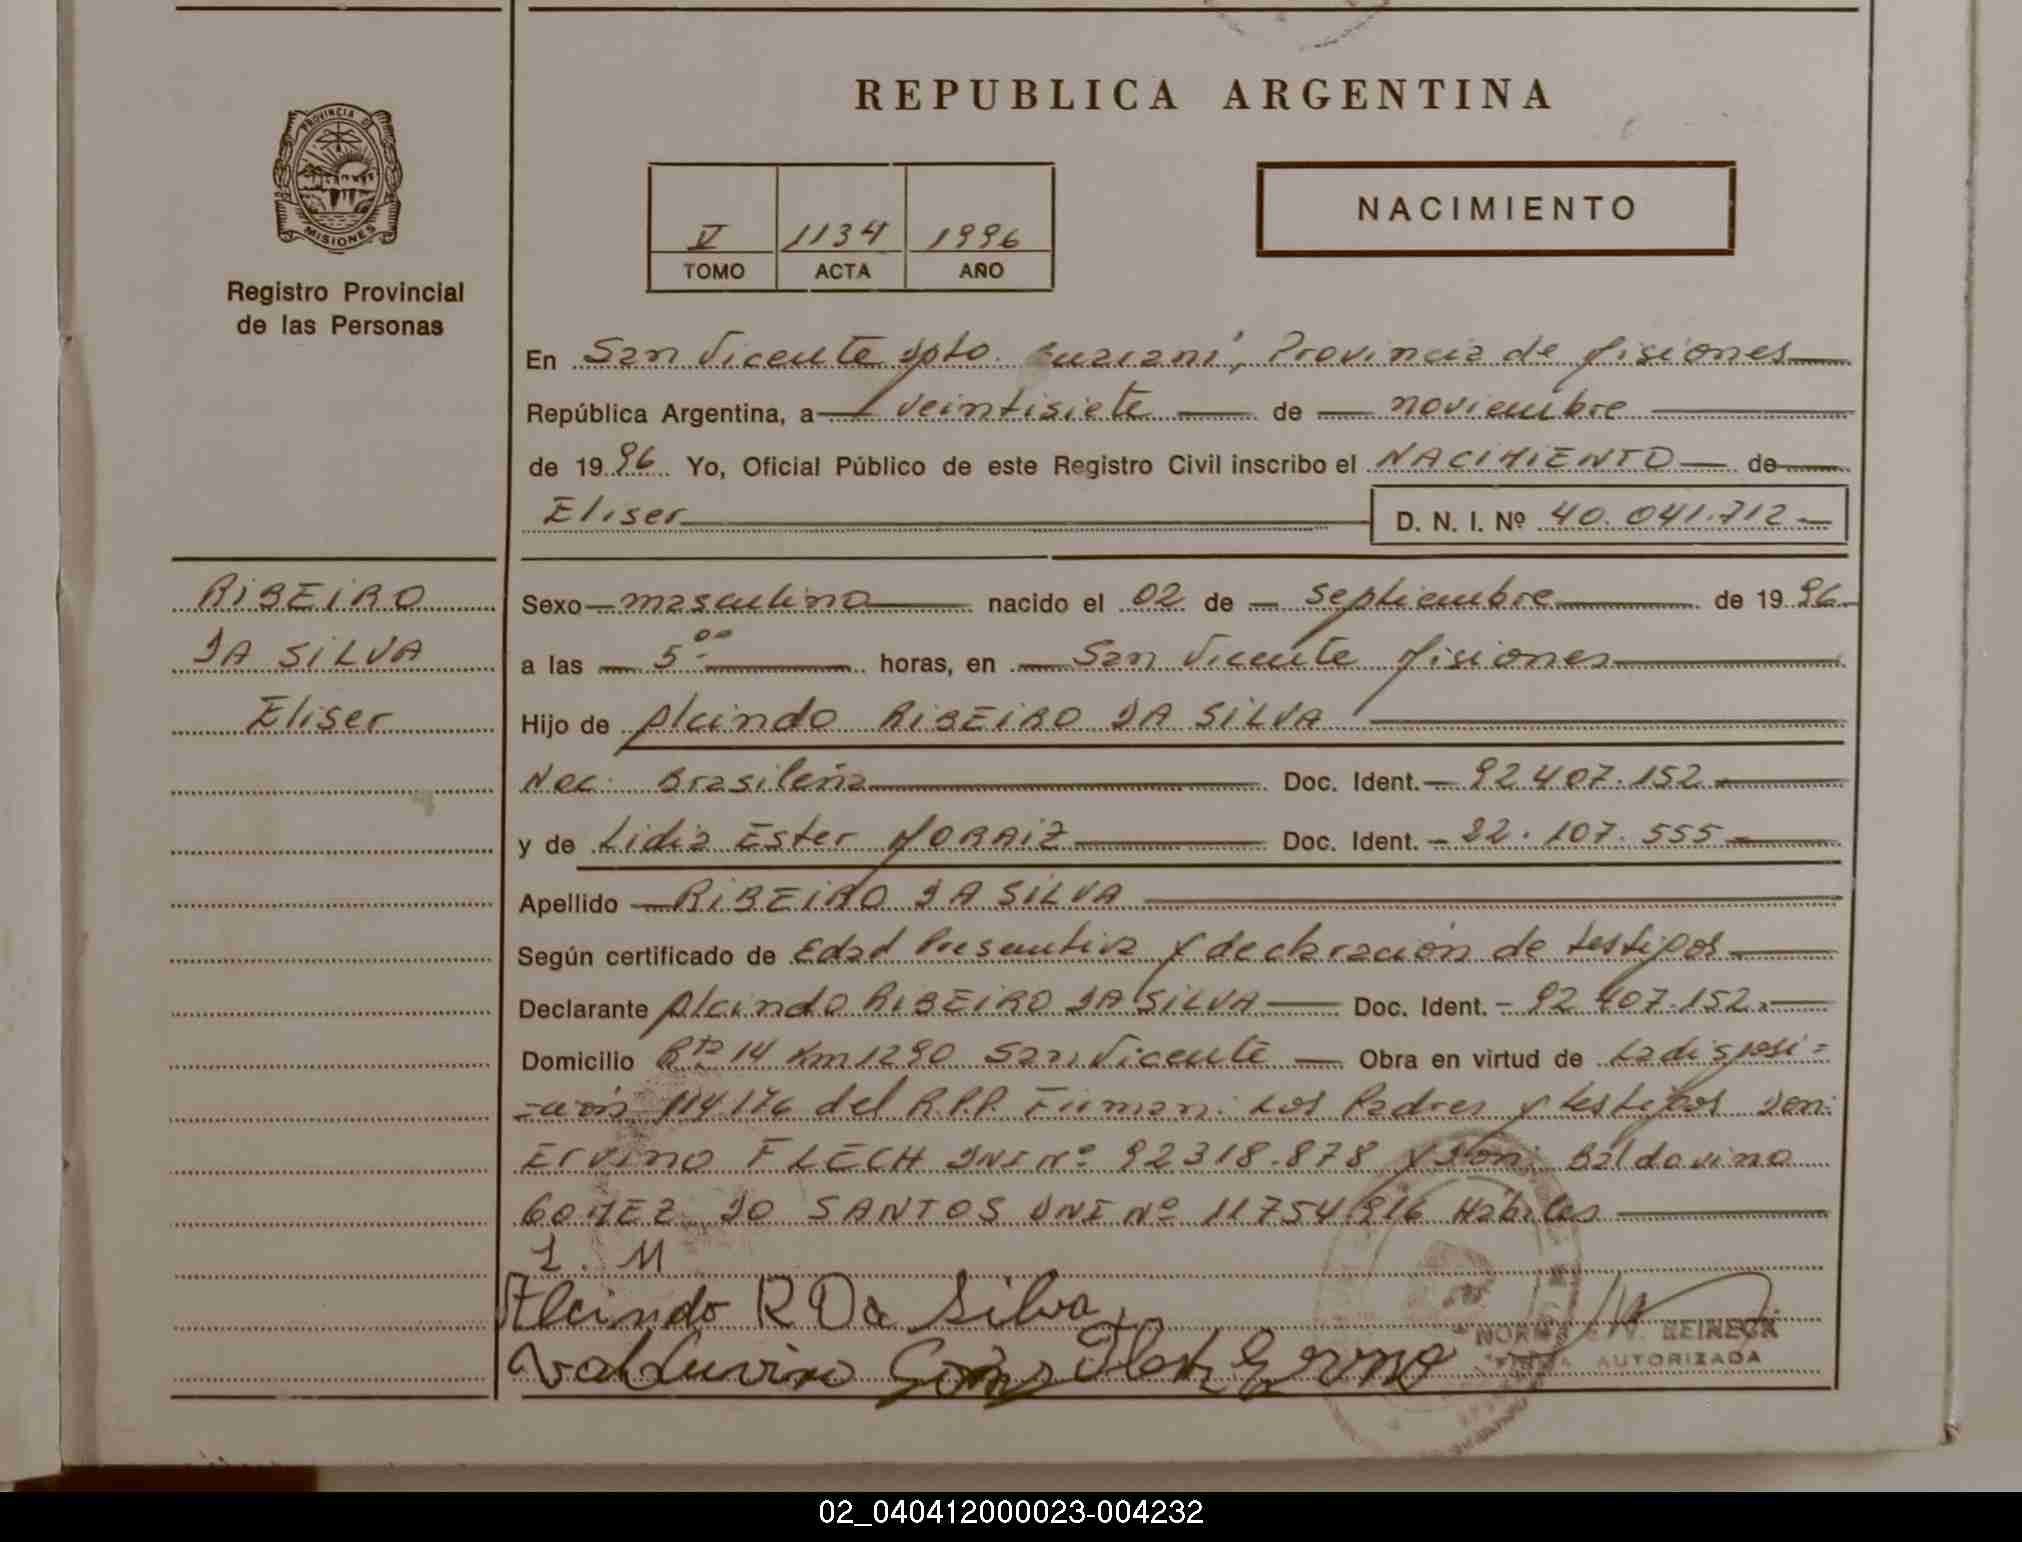 REPUBLICA ARGENTINA
PROVINCIA D
MISIONES
Registro Provincial
de las Personas
V 1134 1996
TOMO ACTA AÑO
NACIMIENTO
En San Vicente Dpto. Guarani, Provincia de Misiones
República Argentina, a veintisiete de noviembre
de 1996 Yo, Oficial Público de este Registro Civil inscribo el NACIMIENTO de
Eliser D. N. I. Nº 40.041.712
RIBEIRO
DA SILVA
Eliser
Sexo masculino nacido el 02 de septiembre de 1996
a las 5:00 horas, en San Vicente Misiones
Hijo de Alcindo RIBEIRO DA SILVA
Nac. Brasileña Doc. Ident. 92.407.152
y de Lidia Ester MORAIZ Doc. Ident. 22.107.555
Apellido RIBEIRO DA SILVA
Según certificado de Edad Presuntiva y declaración de testigos
Declarante Alcindo RIBEIRO DA SILVA Doc. Ident. 92.407.152
Domicilio Rta 14 Km 1290 San Vicente Obra en virtud de La disposi=
=ción 114176 del R.P.P. Firman: Los Padres y testigos Don:
Ervino FLECH DNI Nº 92318.878 y Don: Baldovino
GOMEZ DO SANTOS DNI Nº 11754916 Hábiles
L. M
Alcindo R Da Silva
Valduvino Gomes Flech Ervino
NORMA V. REINECK
FIRMA AUTORIZADA
02_040412000023-004232